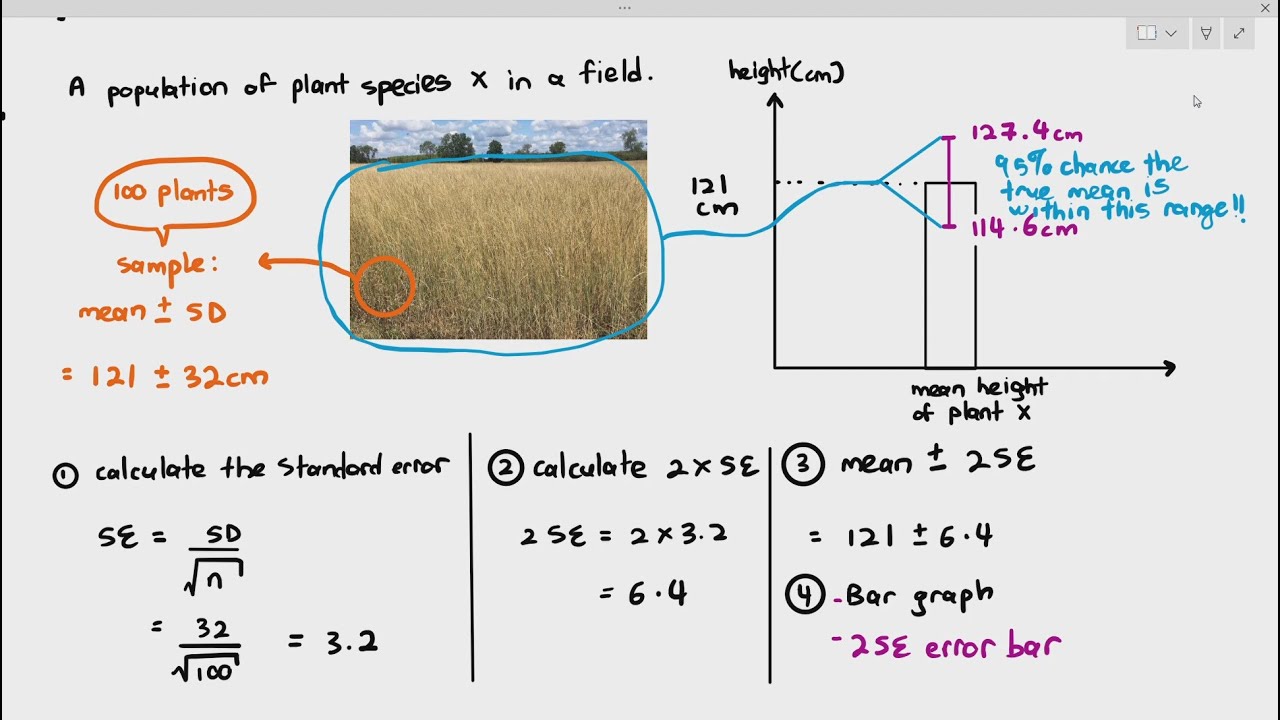 A population of plant species X in a field.
100 plants
sample:
mean ± SD
= 121 ± 32cm
height(cm)
121
cm
127.4cm
95% chance the
true mean is
within this range!!
114.6cm
mean height
of plant X
① calculate the standard error
SE = SD/√n
= 32/√100 = 3.2
② calculate 2 x SE
2 SE = 2 x 3.2
= 6.4
③ mean ± 2SE
= 121 ± 6.4
④ - Bar graph
- 2SE error bar